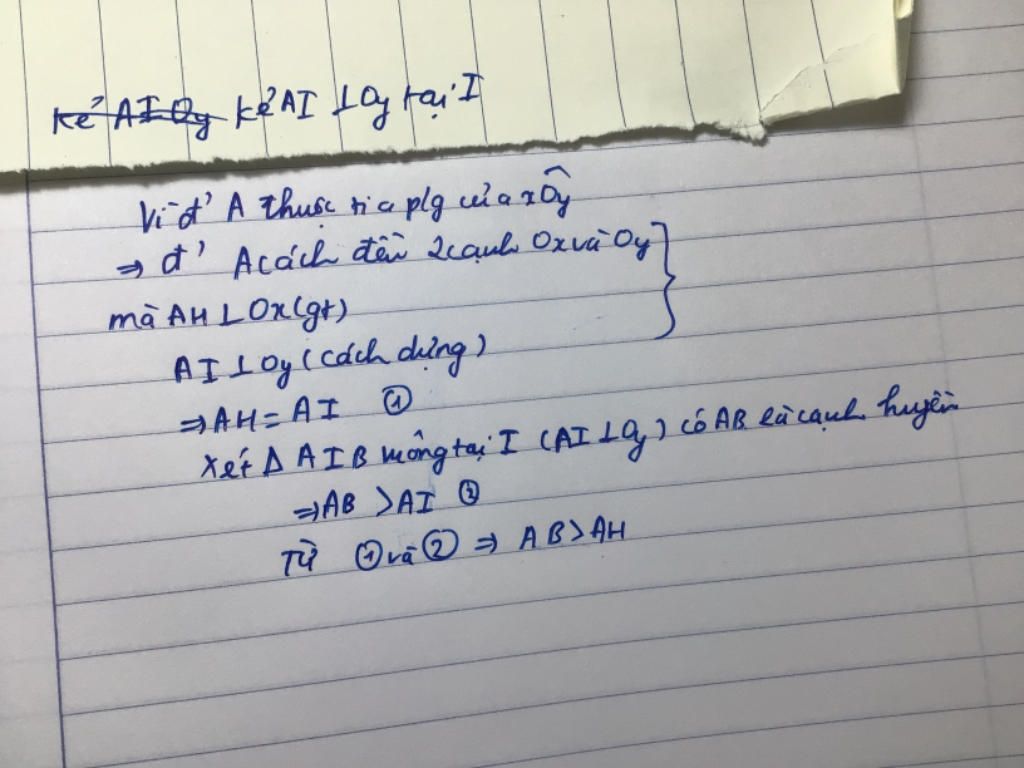 kẻ AI Oy kẻ AI ⊥ Oy tại I
Vì đ' A thuộc tia plg của xÔy
⇒ đ' A cách đều 2 cạnh Ox và Oy
mà AH ⊥ Ox (gt)
AI ⊥ Oy (cách dựng)
⇒ AH = AI ①
Xét Δ AIB vuông tại I (AI ⊥ Oy) có AB là cạnh huyền
⇒ AB > AI ②
Từ ① và ② ⇒ AB > AH